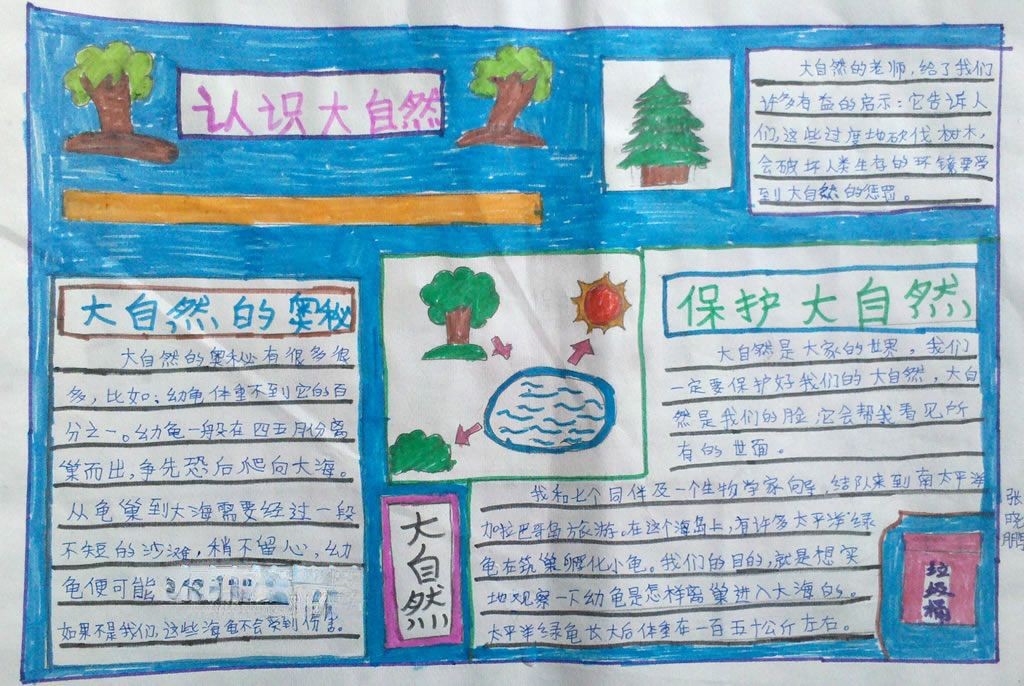 认识大自然
大自然的老师,给了我们
许多有益的启示:它告诉人
们,这些过度地砍伐树木,
会破坏人类生存的环境要受
到大自然的惩罚。
大自然的奥秘
大自然的奥秘有很多很
多,比如:幼龟体重不到它的百
分之一。幼龟一般在四五月份离
巢而出,争先恐后爬向大海。
从龟巢到大海需要经过一段
不短的沙滩,稍不留心,幼
龟便可能
如果不是我们,这些海龟不会受到伤害。
保护大自然
大自然是大家的世界,我们
一定要保护好我们的大自然,大自
然是我们的脸,它会帮我看见所
有的世面。
我和七个同伴及一个生物学家向导,结队来到南太平洋
加拉巴哥岛旅游。在这个海岛上,有许多太平洋绿
龟在筑巢孵化小龟。我们的目的,就是想实
地观察一下幼龟是怎样离巢进入大海的。
太平洋绿龟长大后体重在一百五十公斤左右。
大自然
垃圾桶
张晓鹏